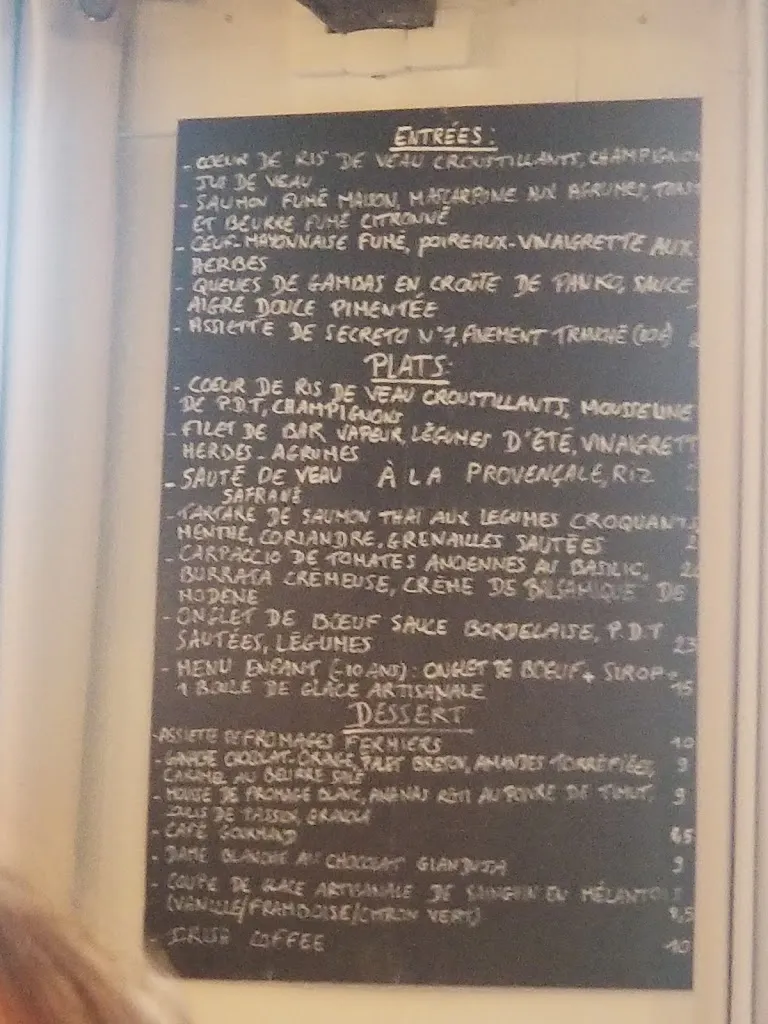 ENTRÉES:
- COEUR DE RIS DE VEAU CROUSTILLANTS, CHAMPIGNON
JUS DE VEAU
- SAUMON FUMÉ MAISON, MASCARPONE AUX AGRUMES, TOAST
ET BEURRE FUMÉ CITRONNÉ
- OEUF-MAYONNAISE FUMÉ, POIREAUX-VINAIGRETTE AUX
HERBES
- QUEUES DE GAMBAS EN CROÛTE DE PANKO, SAUCE
AIGRE DOUCE PIMENTÉE
- ASSIETTE DE SECRETO N°7, FINEMENT TRANCHÉ
PLATS:
- COEUR DE RIS DE VEAU CROUSTILLANTS, MOUSSELINE
DE P.D.T, CHAMPIGNONS
- FILET DE BAR VAPEUR, LÉGUMES D'ÉTÉ, VINAIGRETT
HERBES-AGRUMES
- SAUTÉ DE VEAU À LA PROVENÇALE, RIZ
SAFRANÉ
- TARTARE DE SAUMON THAI AUX LEGUMES CROQUANTS
MENTHE, CORIANDRE, GRENAILLES SAUTÉES
- CARPACCIO DE TOMATES ANCIENNES AU BASILIC,
BURRATA CRÉMEUSE, CRÈME DE BALSAMIQUE DE
MODENE
- ONGLET DE BOEUF SAUCE BORDELAISE, P.D.T
SAUTÉES, LÉGUMES 23
- MENU ENFANT (-10 ANS): ONGLET DE BOEUF + SIROP +
1 BOULE DE GLACE ARTISANALE 15
DESSERT
- ASSIETTE DE FROMAGES FERMIERS 10
- CHOCOLAT-ORANGE, PALET BRETON, AMANDES TORRÉFIÉES, 9
CARAMEL AU BEURRE SALÉ
- MOUSSE DE FROMAGE BLANC, ANANAS ROTI AU POIVRE DE TIMUT, 9
PASSION, GRANOLA
- CAFÉ GOURMAND
- DAME BLANCHE AU CHOCOLAT GIANDUJA 9
- COUPE DE GLACE ARTISANALE DE SAINGHIN EN MÉLANTOIS
(VANILLE/FRAMBOISE/CITRON VERT)
- IRISH COFFEE 10